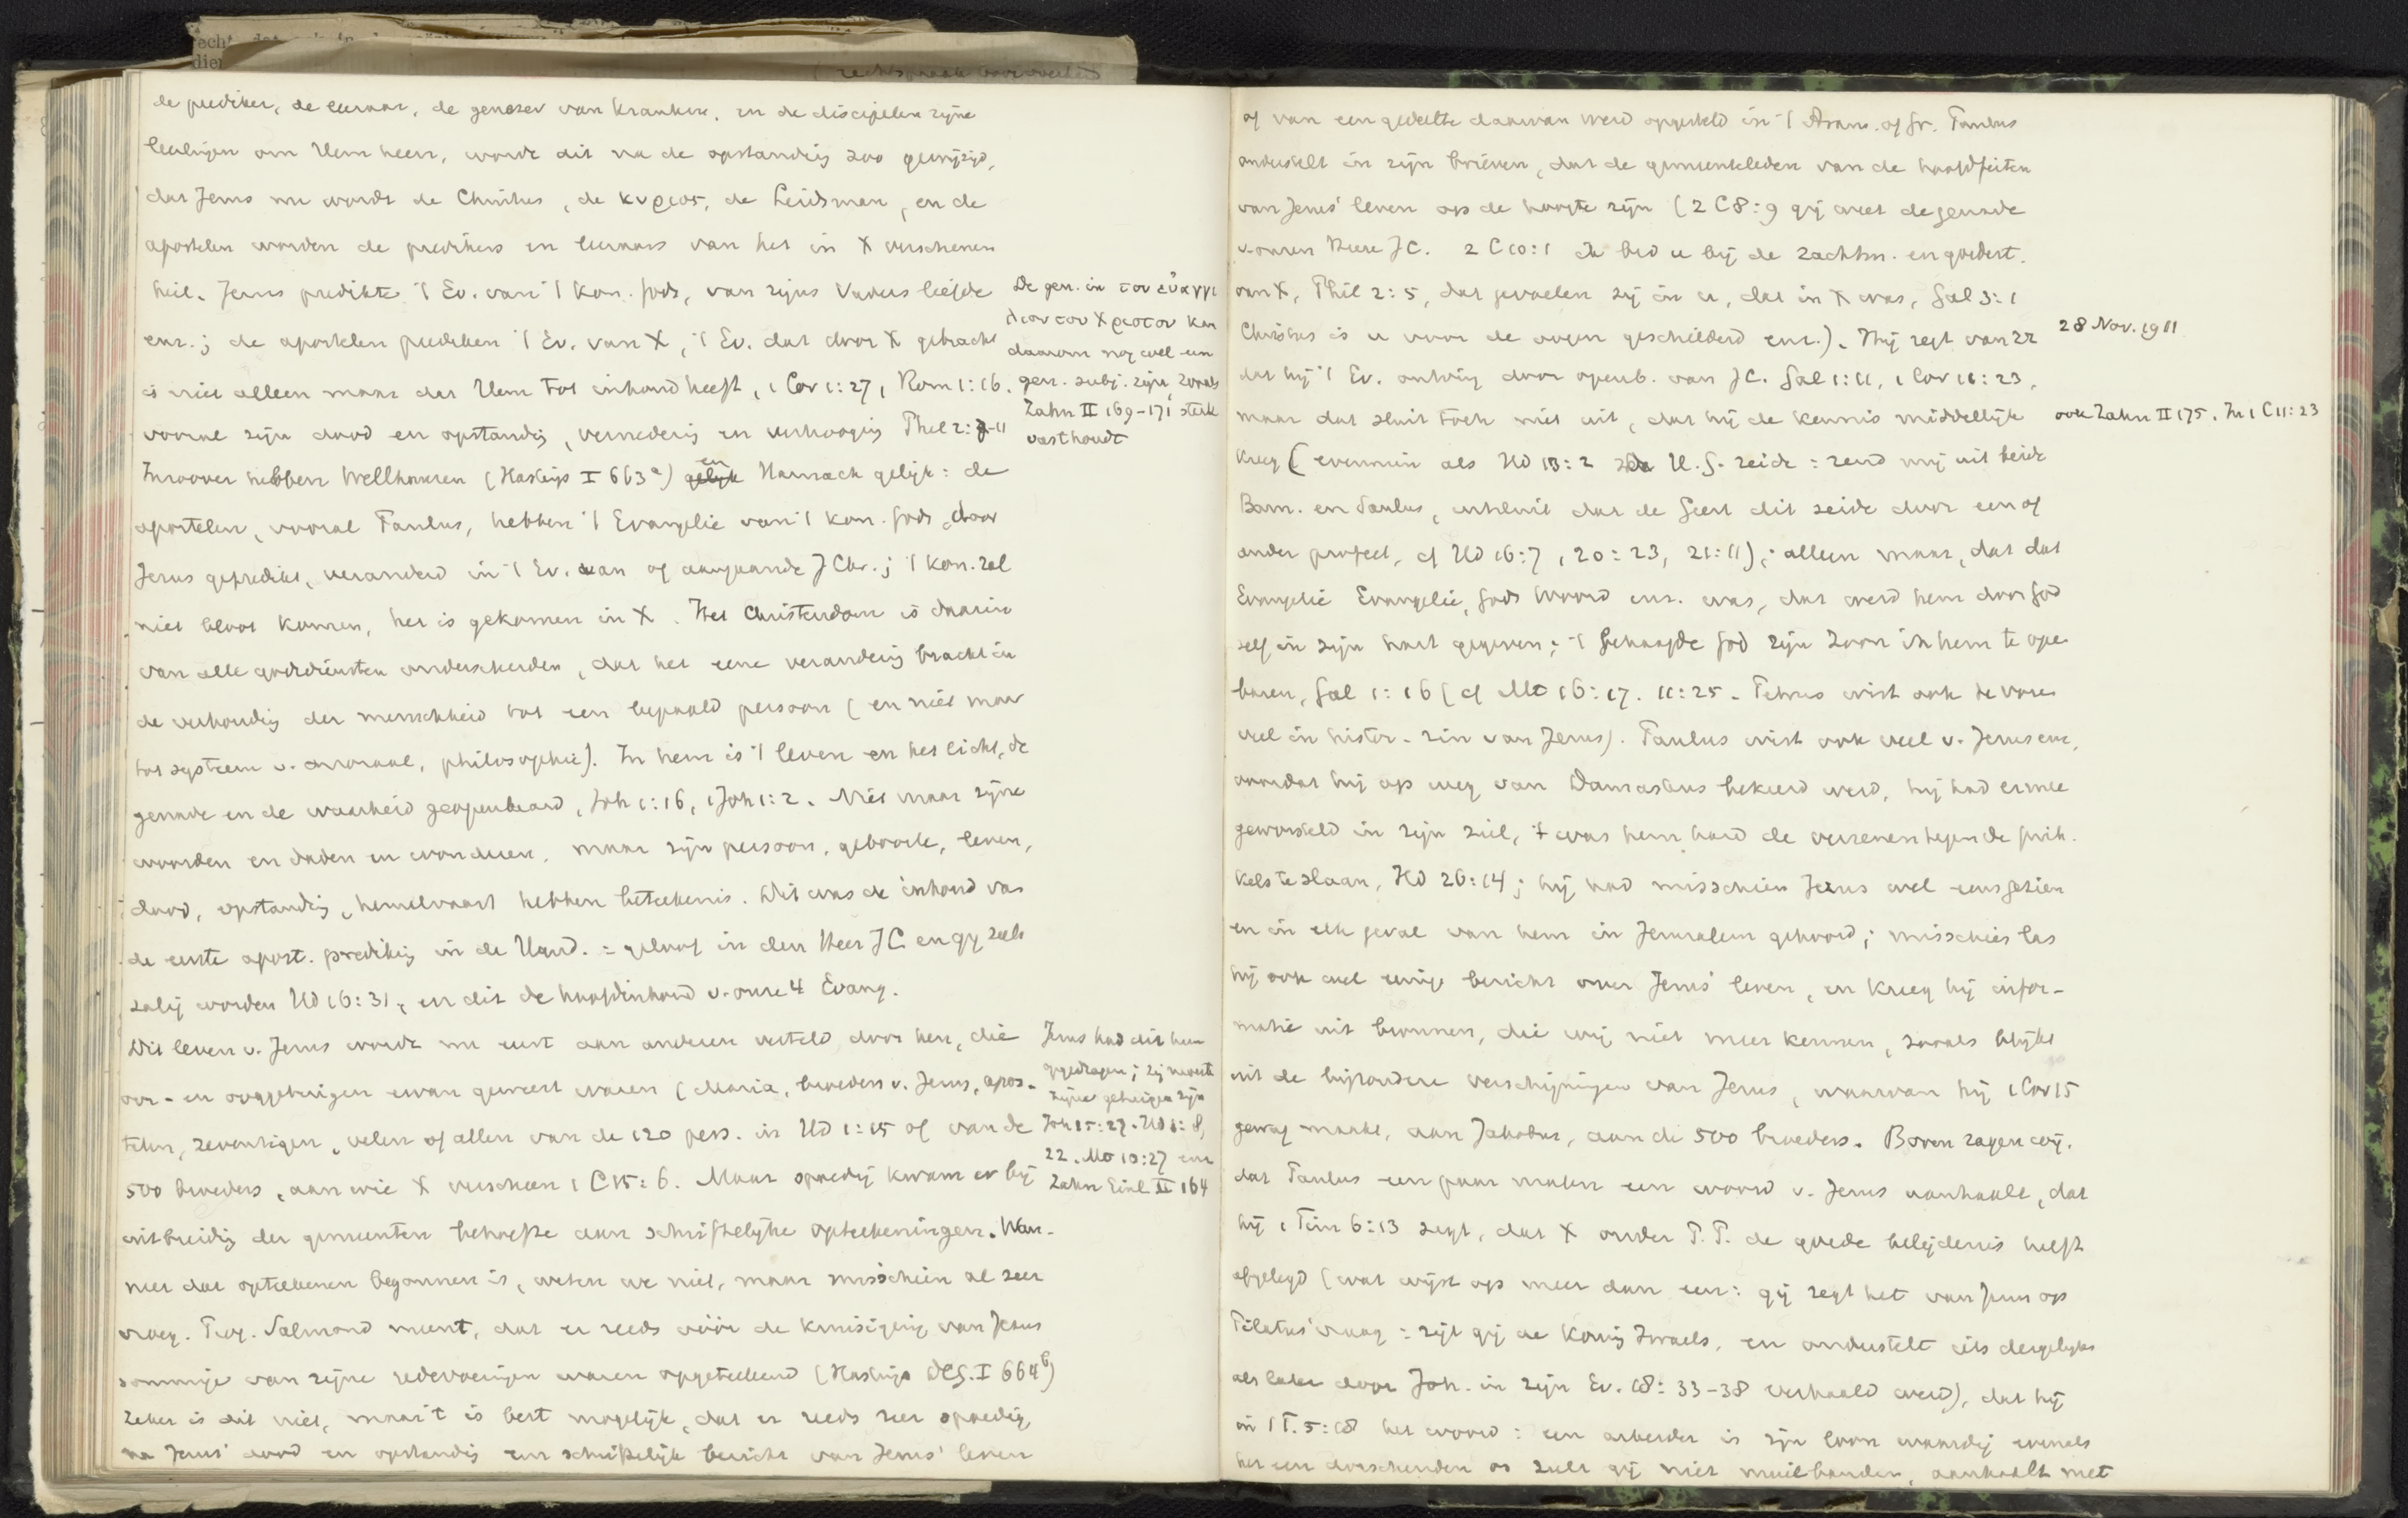 de prediker, de leeraar, de genezer van kranken, en de discipelen zijne
leerlingen om Hem heen, wordt dit na de opstanding zoo gewijzigd,
dat Jezus nu wordt de Christus, de κυριος, de Leidsman, en de
apostelen worden de predikers en leeraars van het in X verschenen
heil. Jezus predikte 't Ev. van 't Kon. Gods, van zijns Vaders liefde
enz.; de apostelen prediken 't Ev. van X, 't Ev. dat door X gebracht
is niet alleen maar dat Hem tot inhoud heeft, 1 Cor 1:27, Rom 1:16.
vooral zijn dood en opstanding, vernedering en verhooging Phil 2:7-11
De gen. in του εὐαγγε
λιον του Χριστου kan
daarom nog wel een
gen. subj. zijn, zooals
Zahn II 169-171 sterk
vasthoudt
Inzoover hebben Wellhausen (Hastings I 663a) en Harnack gelijk: de
apostelen, vooral Paulus, hebben 't Evangelie van 't Kon. Gods, door
Jezus gepredikt, veranderd in 't Ev. van of aangaande J Chr.; 't Kon. zal
niet bloot komen, het is gekomen in X. Het Christendom is daarin
van alle godsdiensten onderscheiden, dat het eene verandering bracht in
de verhouding der menschheid tot een bepaald persoon (en niet maar
tot systeem v. moraal, philosophie). In hem is 't leven en het licht, de
genade en de waarheid geopenbaard, Joh 1:16, 1 Joh 1:2. Niet maar zijne
woorden en daden en wonderen, maar zijn persoon, geboorte, leven,
dood, opstanding, hemelvaart hebben beteekenis. Dit was de inhoud van
de eerste apost. prediking in de Hand. = geloof in den Heer JC en gij zult
zalig worden Hd 16:31, en dit de hoofdinhoud v. onze 4 Evang.
Dit leven v. Jezus wordt nu eerst aan anderen verteld door hen, die
oor- en ooggetuigen ervan geweest waren (Maria, broeders v. Jezus, apos-
telen, zeventigen, velen of allen van de 120 pers. in Hd 1:15 of van de
500 broeders, aan wie X verscheen 1 C 15:6. Maar spoedig kwam er bij
Jezus had dit hun
opgedragen; zij moesten
zijne getuigen zijn
Joh 15:27. Hd 1:8,
22. Mt 10:27 enz
Zahn Einl. II 164
uitbreiding der gemeenten behoefte aan schriftelijke opteekeningen. Wan-
neer dat opteekenen begonnen is, weten we niet, maar misschien al zeer
vroeg. Salmond meent, dat er reeds vóór de kruisiging van Jezus
sommige van zijne redevoeringen waren opgeteekend (Hastings DCG. I 664b)
Zeker is dit niet, maar 't is best mogelijk, dat er reeds zeer spoedig
na Jezus' dood en opstanding een schriftelijk bericht van Jezus' leven
of van een gedeelte daarvan werd opgesteld in 't Aram. of Gr. Paulus
onderstelt in zijn brieven, dat de gemeenteleden van de hoofdfeiten
van Jezus' leven op de hoogte zijn (2 C 8:9 gij weet de genade
v. onzen Heere JC. 2 C 10:1 ik bid u bij de zachtm. en goedert.
van X, Phil 2:5, dat gevoelen zij in u, dat in X was, Gal 3:1
Christus is u voor de oogen geschilderd enz.). Hij zegt van zr
28 Nov. 1911
dat hij 't Ev. ontving door openb. van JC. Gal 1:11, 1 Cor 11:23,
maar dat sluit toch niet uit, dat hij de kennis middellijk
ook Zahn II 175. In 1 C 11:23
kreeg (evenmin als Hd 13:2 de H.G. zeide = zend mij uit beide
Barn. en Saulus, uitsluit dat de Geest dit zeide door een of
ander profeet, cf Hd 16:7, 20:23, 21:11); alleen maar, dat dat
Evangelie Evangelie, Gods Woord enz. was, dat werd hem door God
zelf in zijn hart gegeven; 't behaagde God zijn Zoon in hem te ope
baren, Gal 1:16 (cf Mt 16:17. 11:25. Petrus wist ook te voren
veel in histor. zin van Jezus). Paulus wist ook veel v. Jezus enz,
voordat hij op weg van Damaskus bekeerd werd, hij had ermee
geworsteld in zijn ziel, 't was hem hard de verzenen tegen de prik.
kels te slaan, Hd 26:14; hij had misschien Jezus wel eens gezien
en in elk geval van hem in Jeruzalem gehoord; misschien las
hij ook wel eenige bericht over Jezus' leven, en kreeg hij infor-
matie uit bronnen, die wij niet meer kennen, zooals blijkt
uit de bijzondere verschijningen van Jezus, waarvan hij 1 Cor 15
gewag maakt, aan Jakobus, aan de 500 broeders. Boven zagen wij,
dat Paulus een paar malen een woord v. Jezus aanhaalt, dat
hij 1 Tim 6:13 zegt, dat X onder P.P. de goede belijdenis heeft
afgelegd (wat wijst op meer dan een: gij zegt het van Jezus op
Pilatus' vraag = zijt gij de Koning Israels, en onderstelt iets dergelijks
als later door Joh. in zijn Ev. 18:33-38 verhaald werd), dat hij
in 1 T. 5:18 het woord: een arbeider is zijn loon waardig evenals
het een dorschenden os zult gij niet muilbanden, aanhaalt met